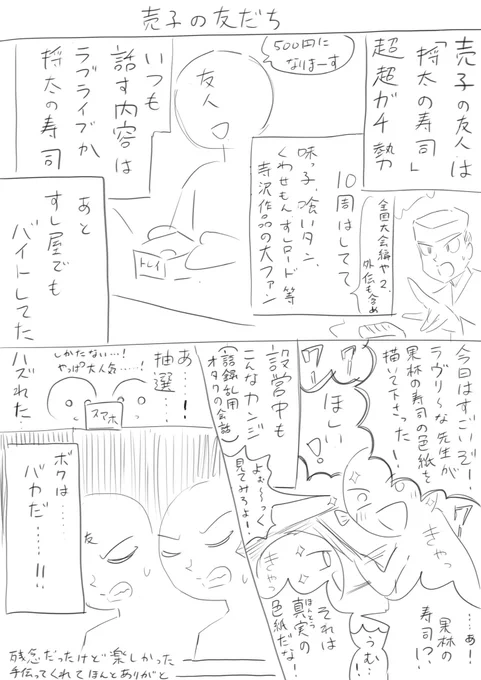 売子の友だち
売子の友人は
「将太の寿司」
超超ガチ勢
全国大会編や2、
外伝も含め
10周はしてて
味っ子、喰いタン、
くわせもん、すしロード等
寺沢作品の大ファン
500円に
なりまーす
友人
トレイ
いつも
話す内容は
ラブライブか
将太の寿司
あと
すし屋でも
バイトしてた
今日はすごいぞ!
ラヴリ〜な先生が
果林の寿司の色紙を
描いて下さった!
ワー
ワー
ほしい!
…あ!
果林の
寿司!?
きゃっ
きゃっ
うむ…!
それは
真実の
ほんとう
色紙だな!
よぉ〜っく
見てみろよ!
設営中も
こんなカンジ
(語録乱用
オタクの会話)
あ…!
抽選…
ハズれた…
しかたない…!
やっぱ大人気……!
スマホ
友
ボクは……
バカだ……!!
残念だったけど楽しかった
手伝ってくれてほんとありがと